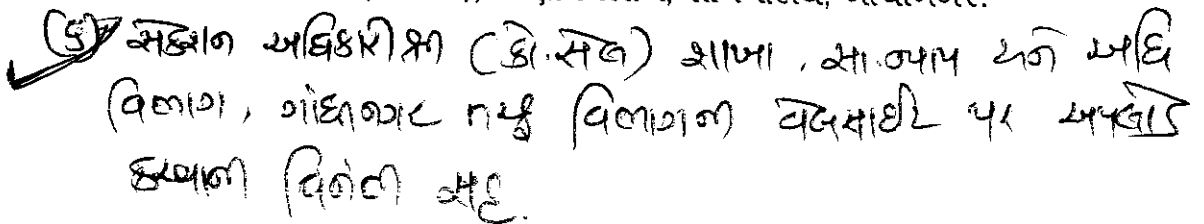 (૬) સેક્શન અધિકારીશ્રી (કો.સેલ) શાખા, સા.ન્યાય અને અધિ
વિભાગ, ગાંધીનગર તરફ વિભાગની વેબસાઈટ પર અપલોડ
કરવાની વિનંતી સહ.